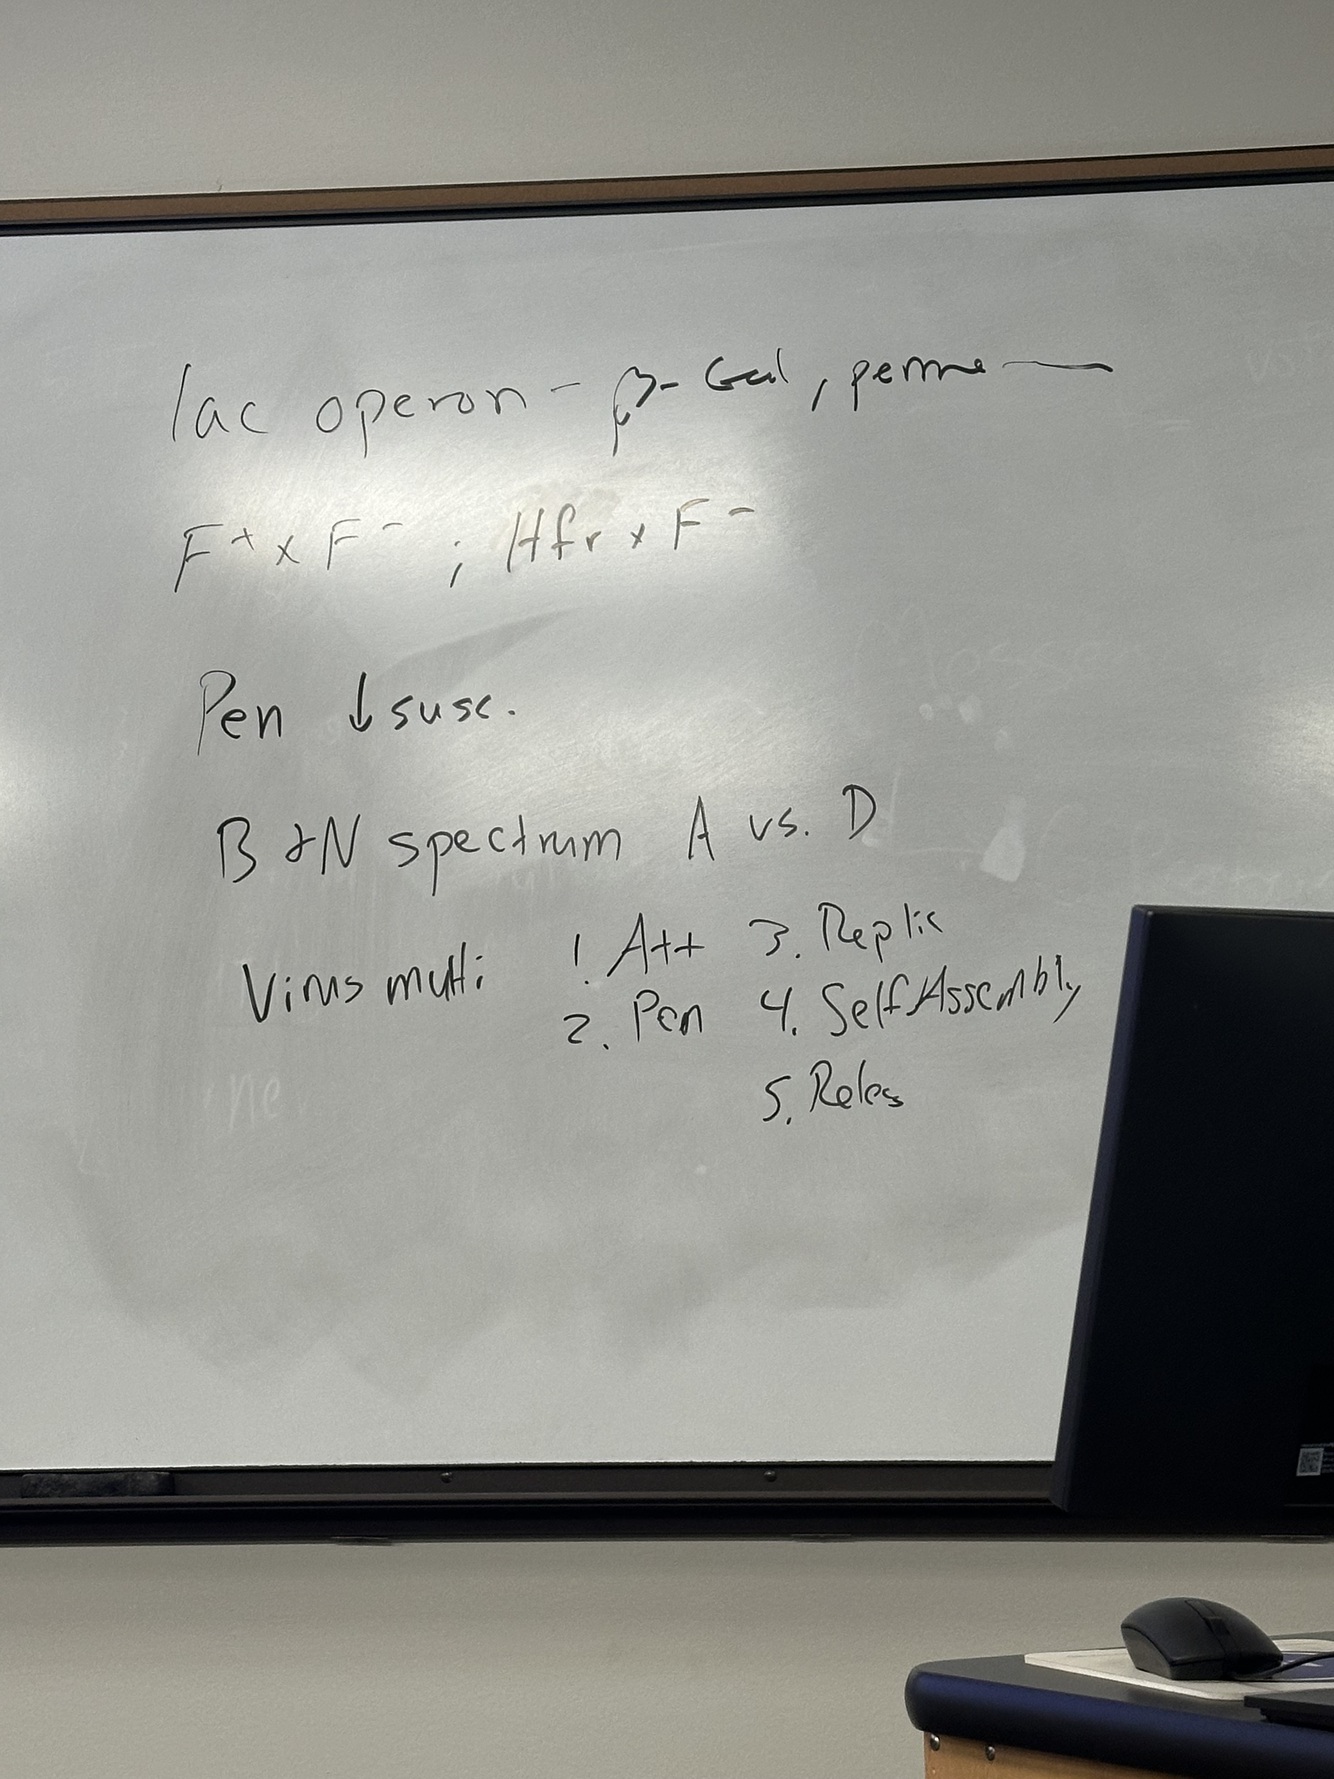 lac operon - β-Gal, perme
F⁺ x F⁻ ; Hfr x F⁻
Pen ↓ susc.
B + N spectrum A vs. D
Virus multi 1. Att 3. Replic
2. Pen 4. Self Assembly
5. Reles
ne